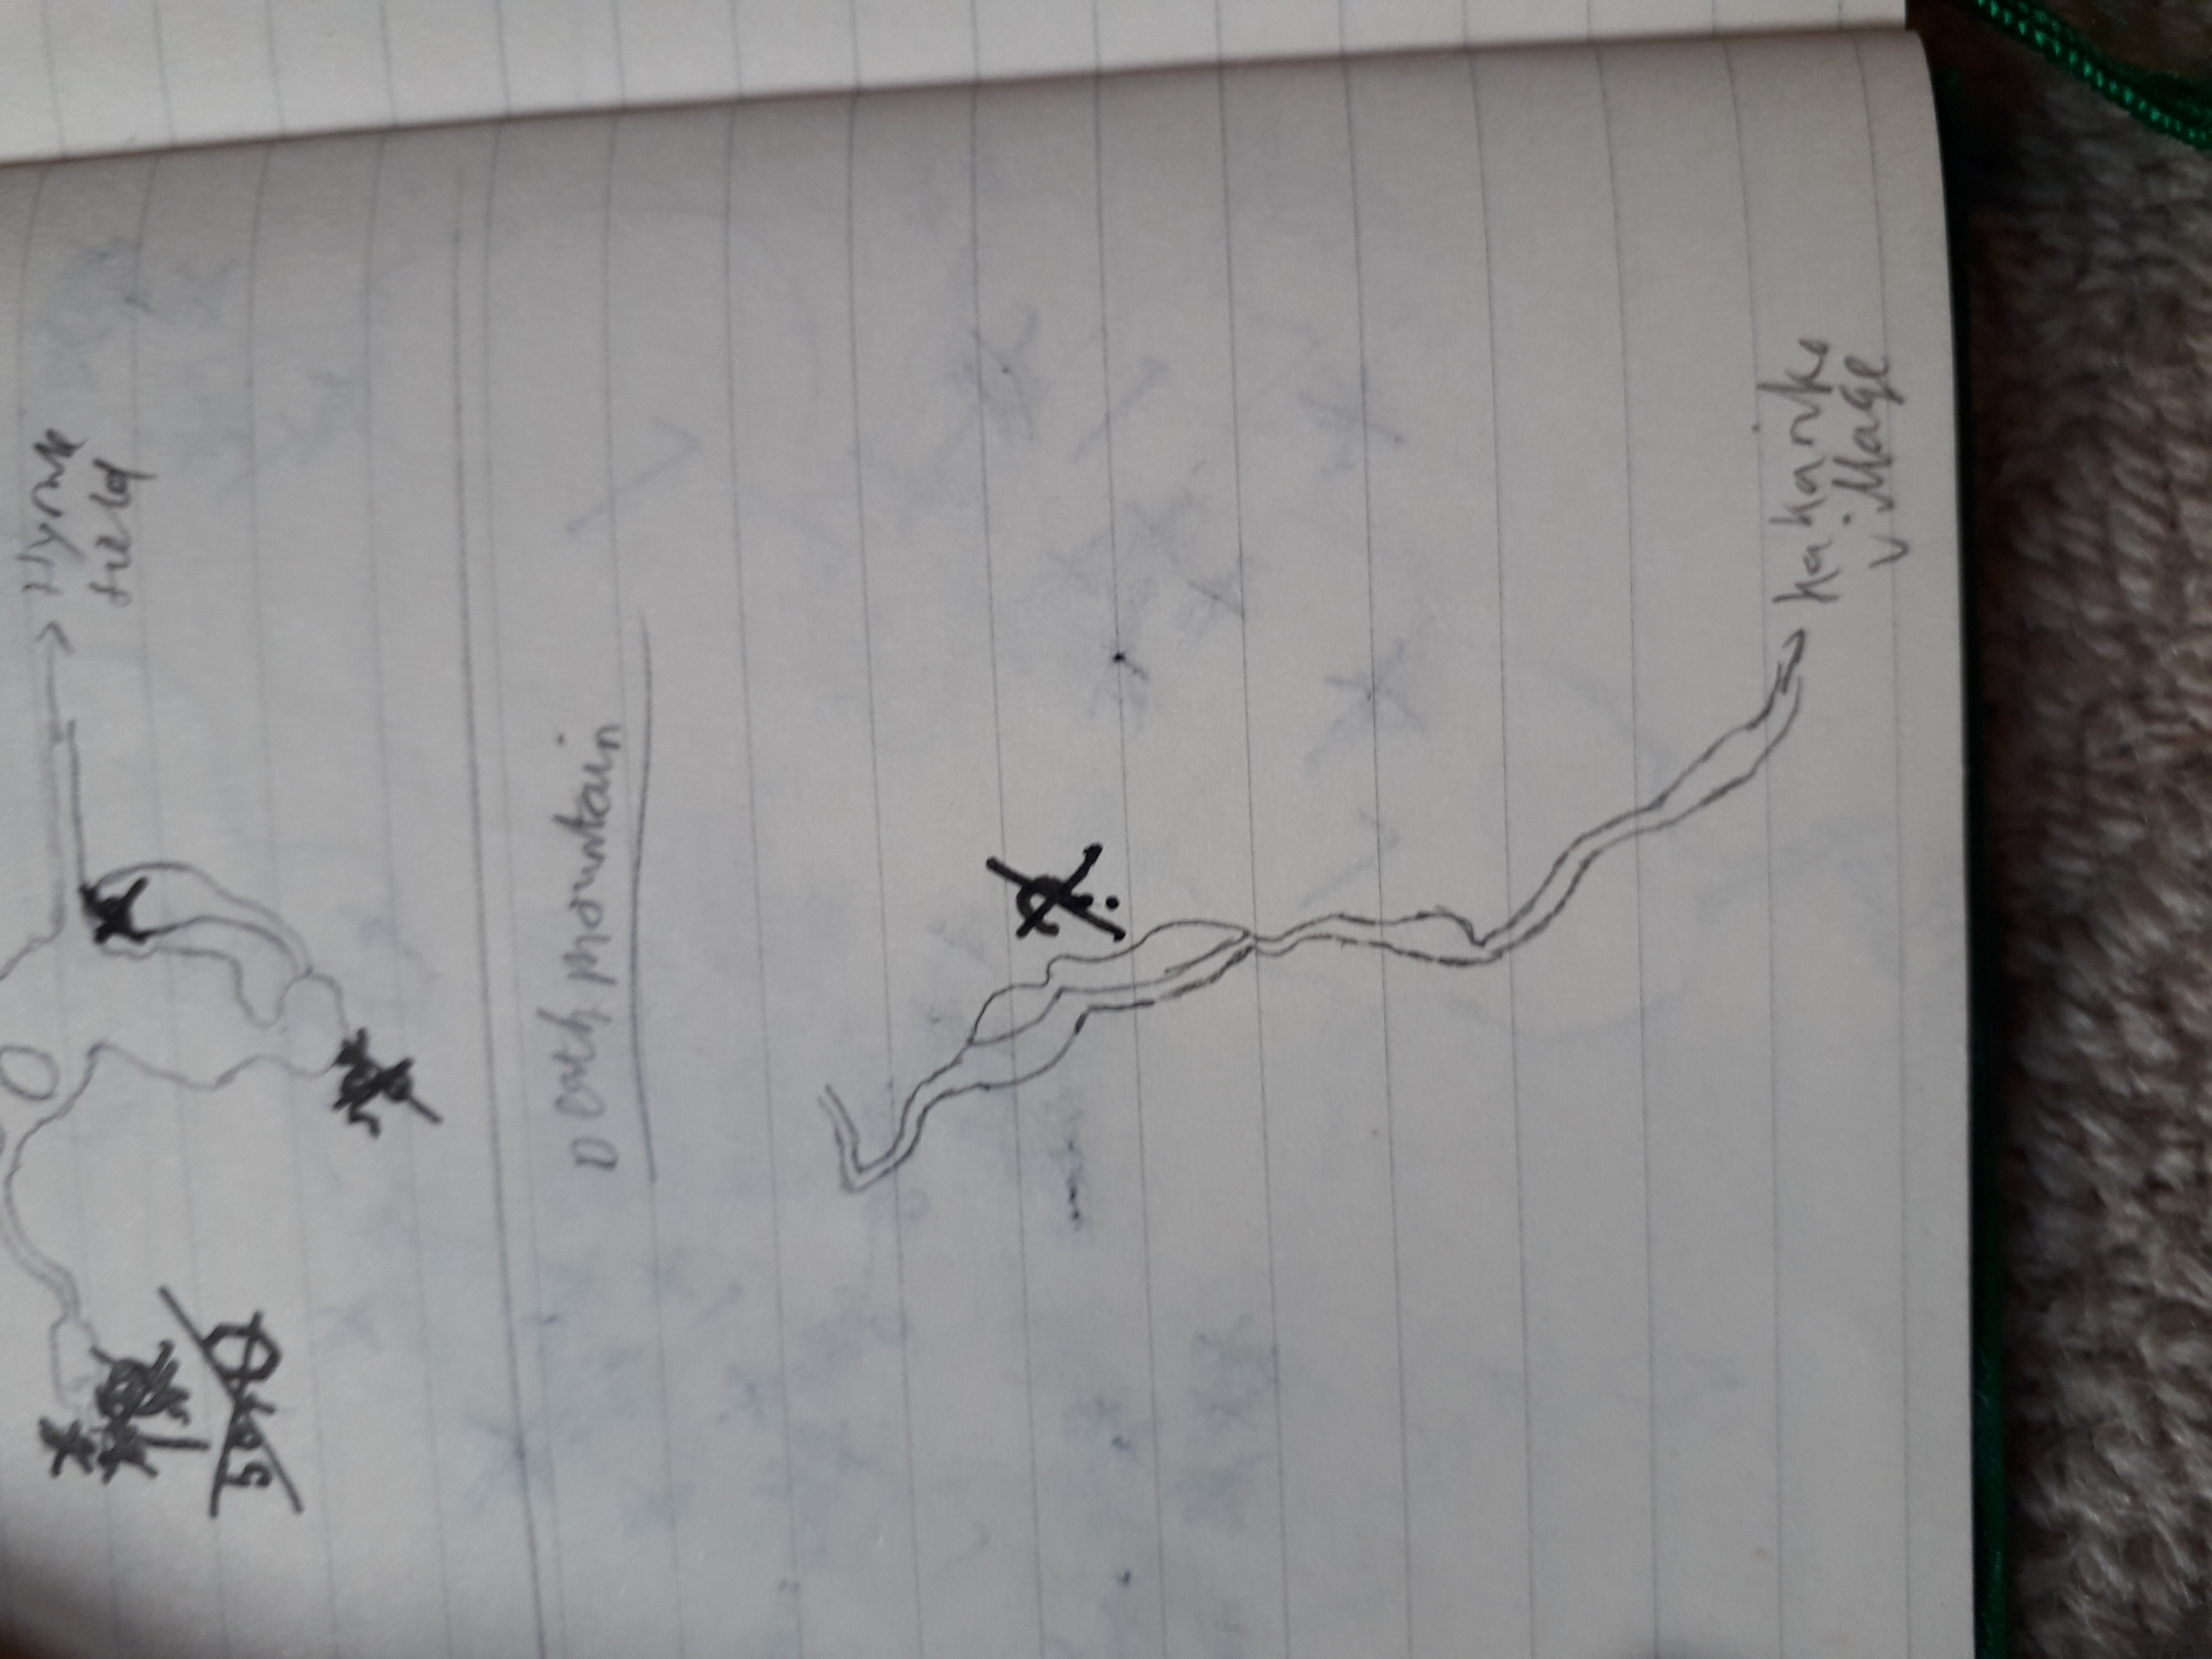 Hyrule
field
Death mountain
?
Kakariko
village